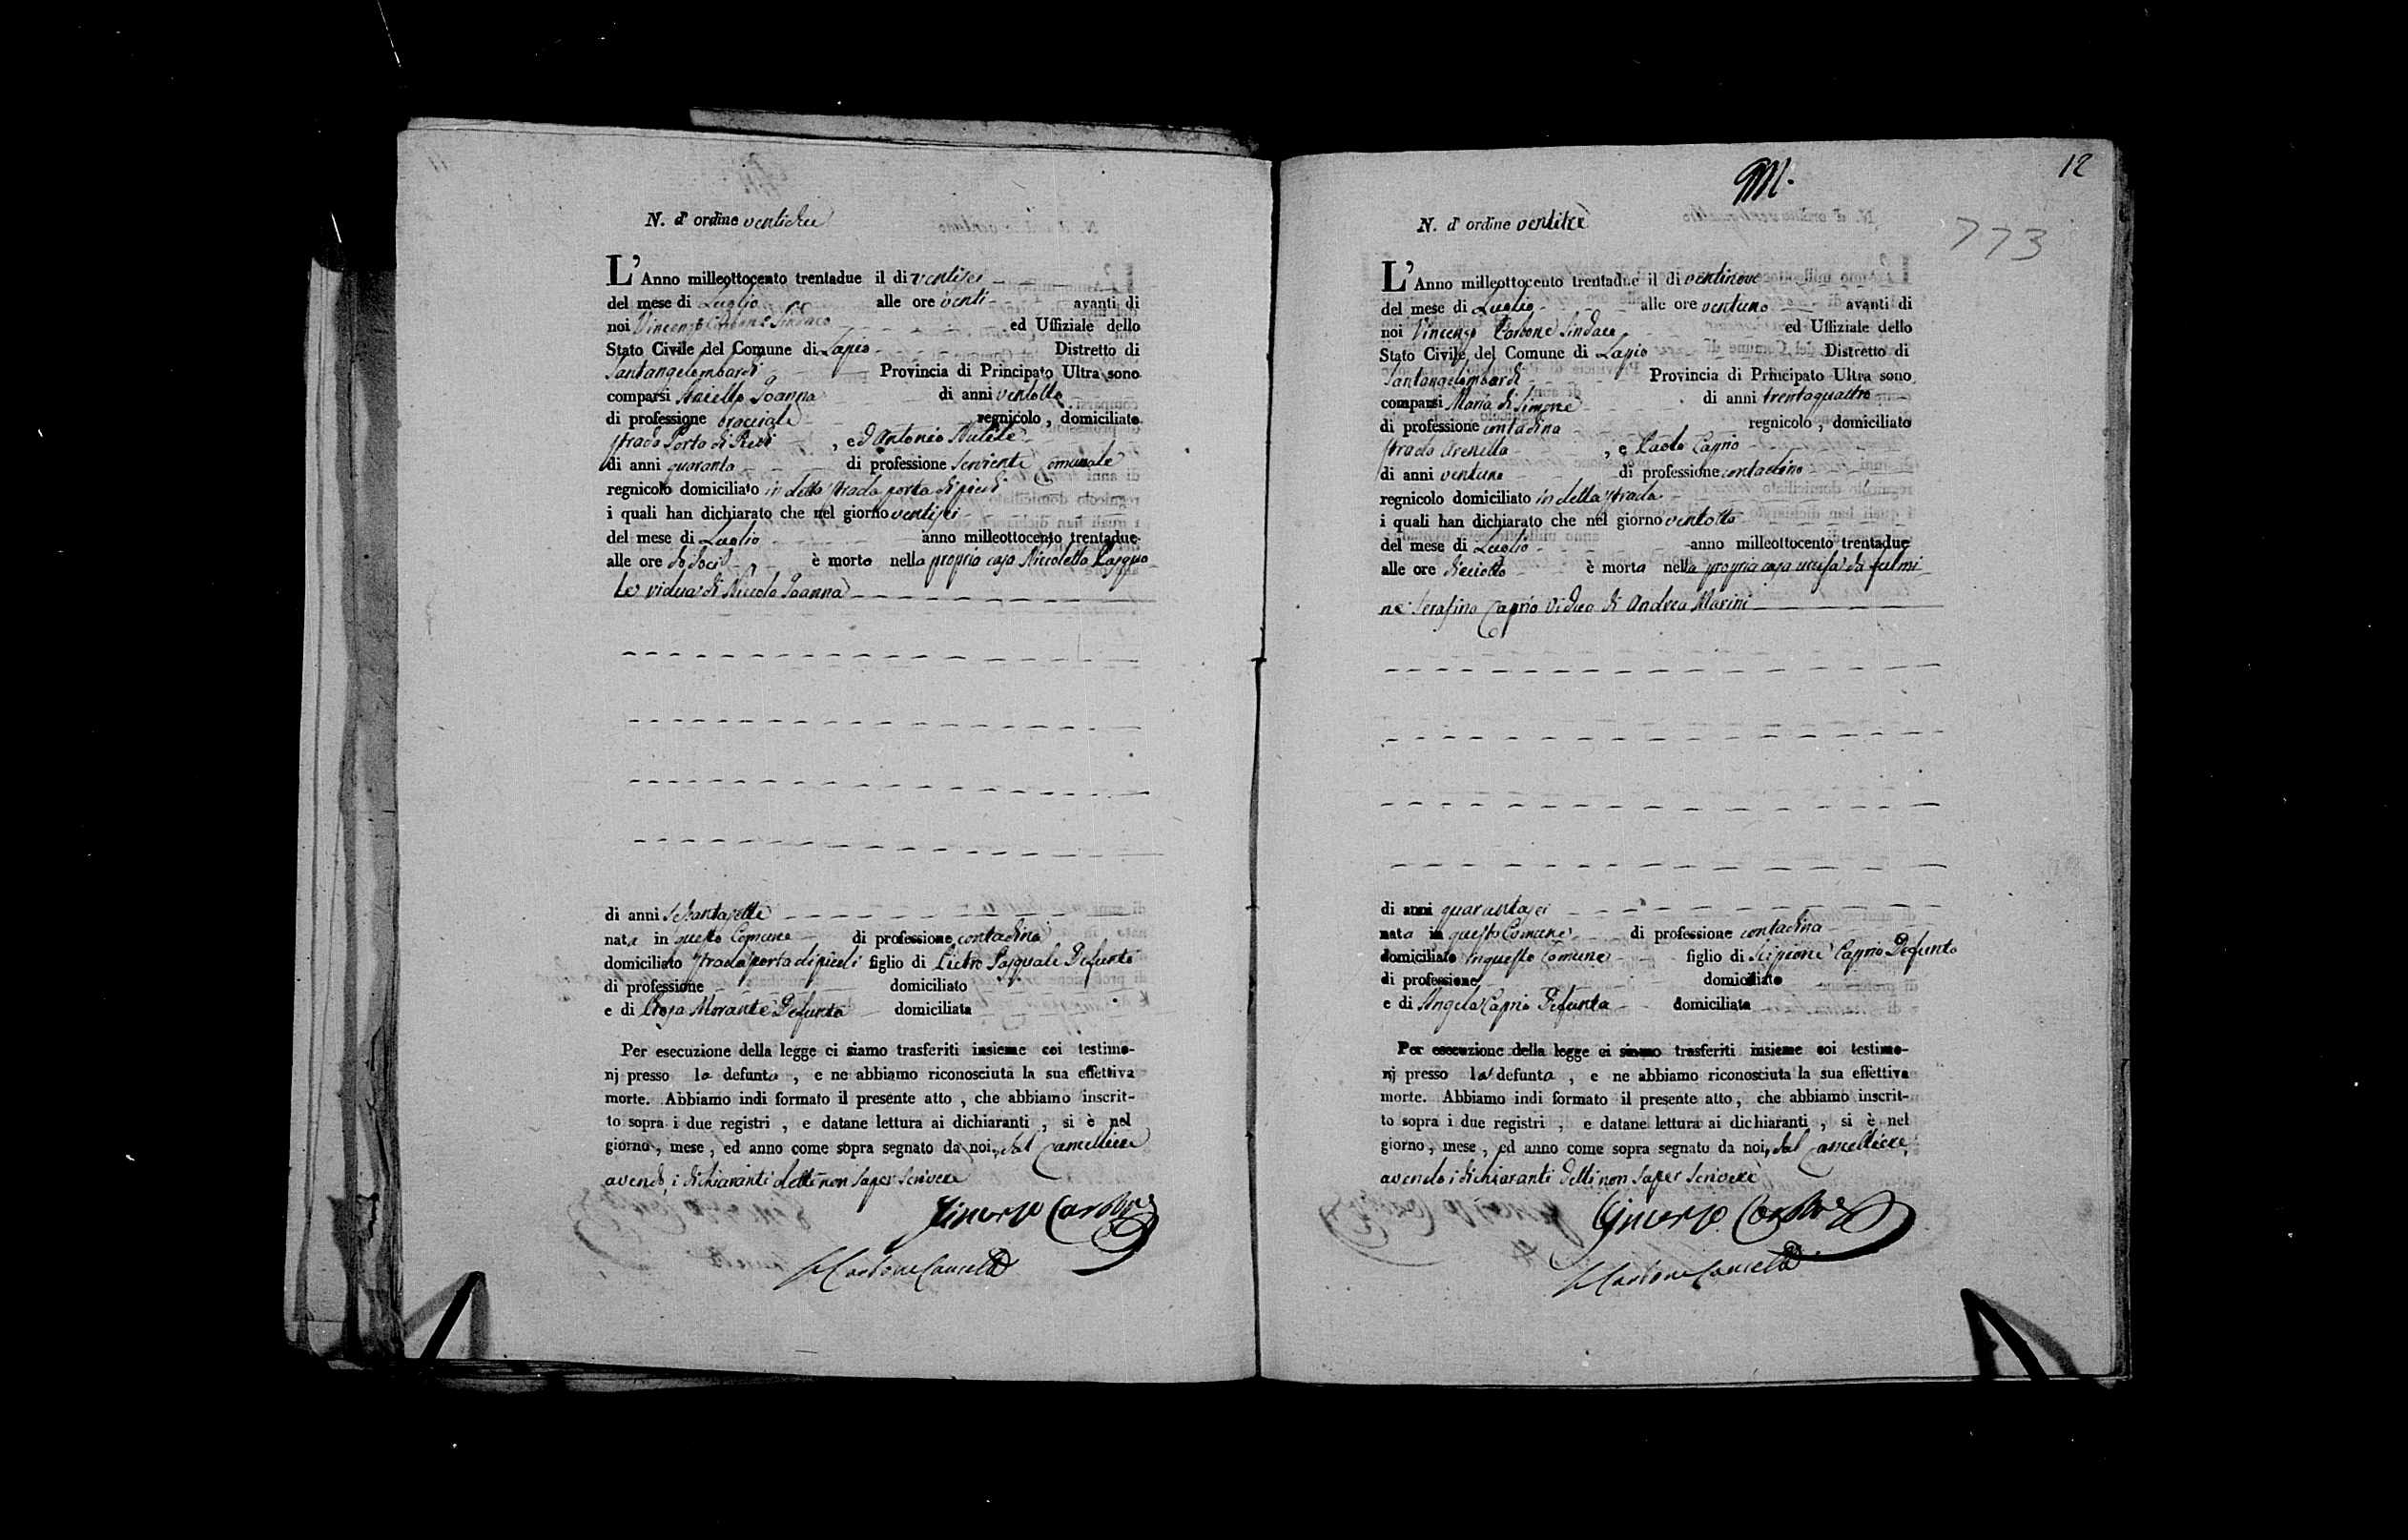 N. d' ordine ventidue
L'Anno milleottocento trentadue il di ventisei
del mese di Luglio alle ore venti avanti di
noi Vincenzo Carbone Sindaco ed Uffiziale dello
Stato Civile del Comune di Lapio Distretto di
Santangelombardi Provincia di Principato Ultra sono
comparsi Aniello Joanna di anni ventotto
di professione bracciale regnicolo, domiciliato
strada Porta di Piedi, ed Antonio
di anni quaranta di professione serviente Comunale
regnicolo domiciliato in detta strada porta di piedi
i quali han dichiarato che nel giorno ventisei
del mese di Luglio anno milleottocento trentadue
alle ore dodoci è morta nella propria casa Nicoletta Pasqua
le vidua di Niccola Joanna
di anni settantasette
nata in questo Comune di professione contadina
domiciliato strada porta di piedi figlio di Pietro Pasquale Defunto
di professione domiciliato
e di Rosa Morante Defunta domiciliata
Per esecuzione della legge ci siamo trasferiti insieme coi testimo-
nj presso la defunta, e ne abbiamo riconosciuta la sua effettiva
morte. Abbiamo indi formato il presente atto, che abbiamo inscrit-
to sopra i due registri, e datane lettura ai dichiaranti, si è nel
giorno, mese, ed anno come sopra segnato da noi, dal Cancelliere
avendo i dichiaranti detto non saper scrivere
Vincenzo Carbone
Carbone Cancell
M.
12
773
N. d' ordine ventitrè
L'Anno milleottocento trentadue il di ventinove
del mese di Luglio alle ore ventuno avanti di
noi Vincenzo Carbone Sindaco ed Uffiziale dello
Stato Civile del Comune di Lapio Distretto di
Santangelombardi Provincia di Principato Ultra sono
comparsi Maria di Simone di anni trentaquattro
di professione contadina regnicolo, domiciliato
strada Arenella, e Paolo Caprio
di anni ventuno di professione contadino
regnicolo domiciliato in detta strada
i quali han dichiarato che nel giorno ventotto
del mese di Luglio anno milleottocento trentadue
alle ore dieciotto è morta nella propria casa uccisa da fulmi
ne Serafina Caprio vidua di Andrea Marini
di anni quarantasei
nata in questo Comune di professione contadina
domiciliato in questo Comune figlio di Scipione Caprio Defunto
di professione domiciliato
e di Angela Caprio Defunta domiciliata
Per esecuzione della legge ci siamo trasferiti insieme coi testimo-
nj presso la defunta, e ne abbiamo riconosciuta la sua effettiva
morte. Abbiamo indi formato il presente atto, che abbiamo inscrit-
to sopra i due registri, e datane lettura ai dichiaranti, si è nel
giorno, mese, ed anno come sopra segnato da noi, dal Cancelliere,
avendo i dichiaranti detti non saper scrivere
Vincenzo Carbone
Carbone Cancell